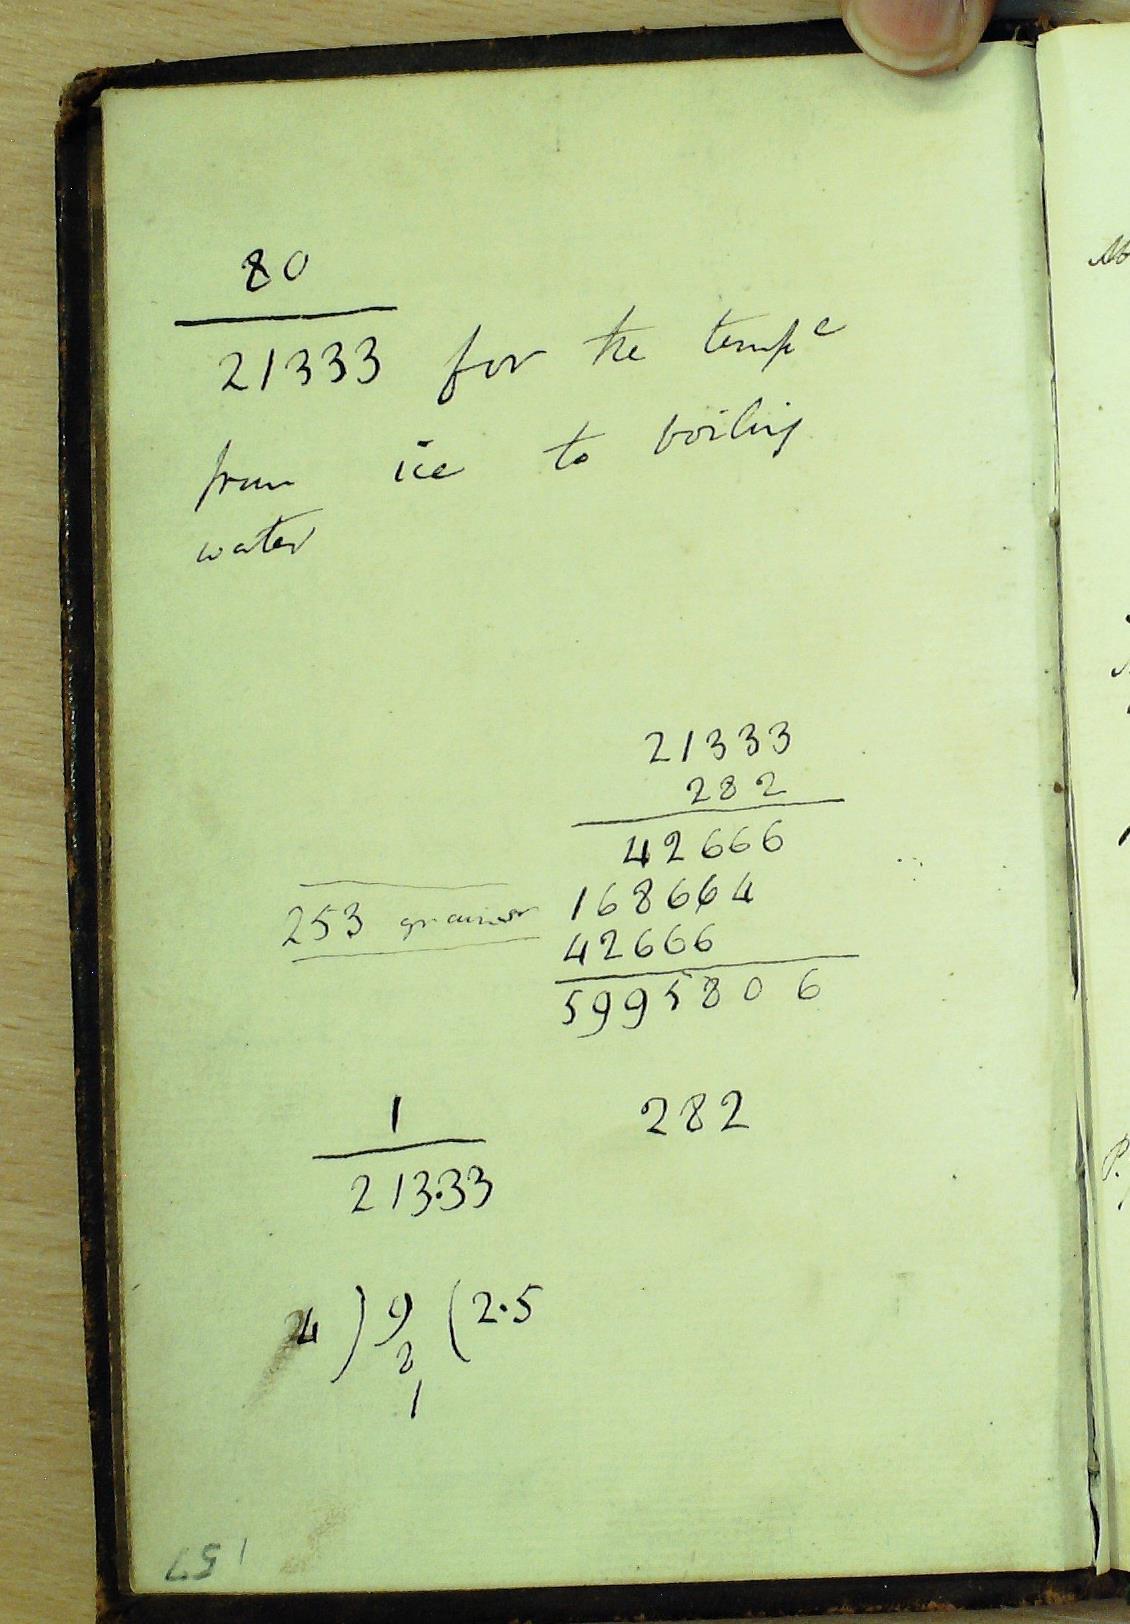 157
80
21333 for the tempe
from ice to boiling
water
21333
282
42666
168664
42666
5995806
253 grains
282
1
213.33
4 ) 9 ( 2.5
2
1